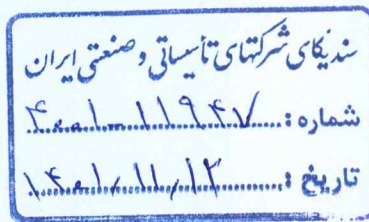 سندیکای شرکتهای تأسیساتی و صنعتی ایران
شماره : ۴۰۱-۱۱۹۴۷
تاریخ : ۱۴۰۱/۱۱/۱۲